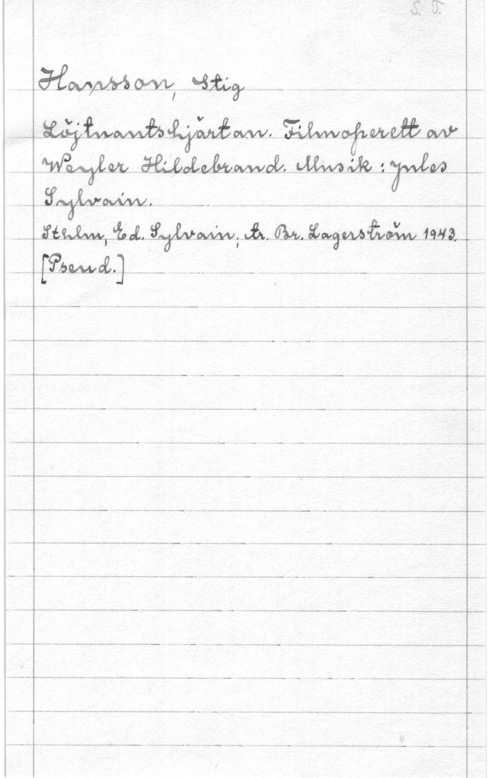 S. T.
Hansson, Stig
Löjtnantshjärtan. Filmoperett av
Weyler Hildebrand. Musik: Jules
Sylvain.
Sthlm, Ed. Sylvain, tr. Br. Lagerström 1943.
[Pseud.]